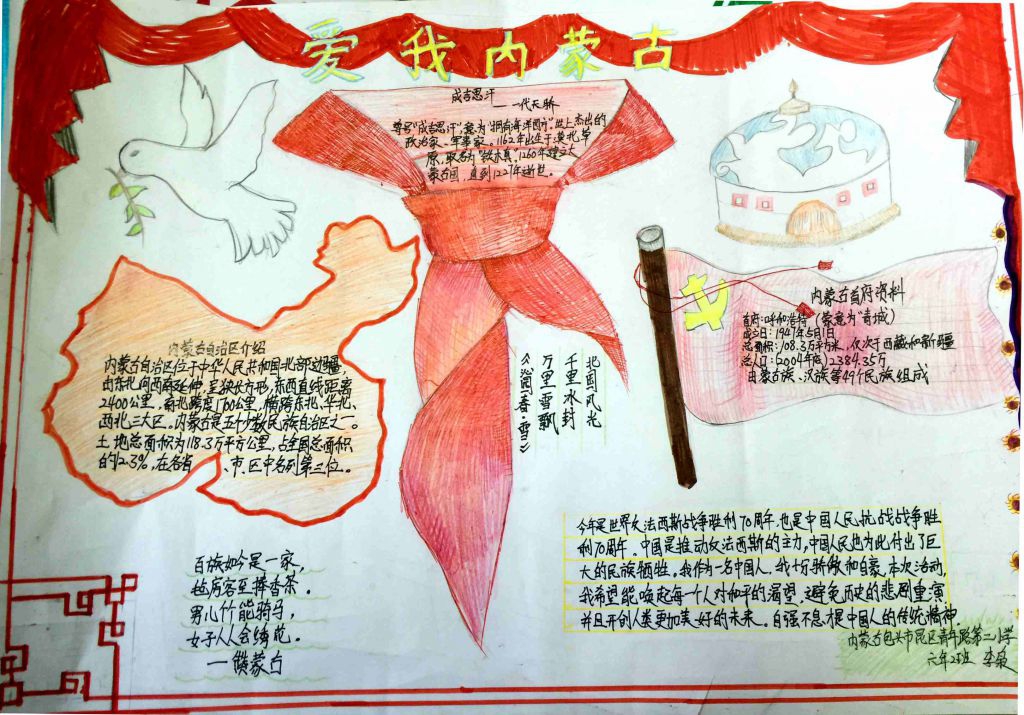 爱我内蒙古
成吉思汗
——一代天骄
尊号“成吉思汗”,意为“拥有海洋四方”。世上杰出的
政治家、军事家。1162年出生于漠北草
原,取名为“铁木真”。1260年建立大
蒙古国,直到1227年逝世。
内蒙古自治区介绍
内蒙古自治区位于中华人民共和国北部边疆,
由东北向西南延伸,呈狭长方形,东西直线距离
2400公里,南北跨度1700公里,横跨东北、华北、
西北三大区。内蒙古是五个少数民族自治区之一。
土地总面积为118.3万平方公里,占全国总面积
的12.3%,在各省、市、区中名列第三位。
北国风光
千里冰封
万里雪飘
《沁园春·雪》
内蒙古首府资料
首府:呼和浩特(蒙意为“青城)
成立日:1947年5月1日
总面积:108.3万平方米,仅次于西藏和新疆
总人口:(2004年底)2384.35万
由蒙古族、汉族等49个民族组成
百族如今是一家,
毡房客至择香茶。
男儿个能骑马,
女子人人会绣花。
——赞蒙古
今年是世界反法西斯战争胜利70周年,也是中国人民抗战战争胜
利70周年。中国是推动反法西斯的主力,中国人民也为此付出了巨
大的民族牺牲。我作为一名中国人,我十分骄傲和自豪。本次活动,
我希望能唤起每一个人对和平的渴望,避免历史的悲剧重演,
并且开创人类更加美好的未来。自强不息,才是中国人的传统精神.
内蒙古包头市昆区青年路第二小学
六年2班 李